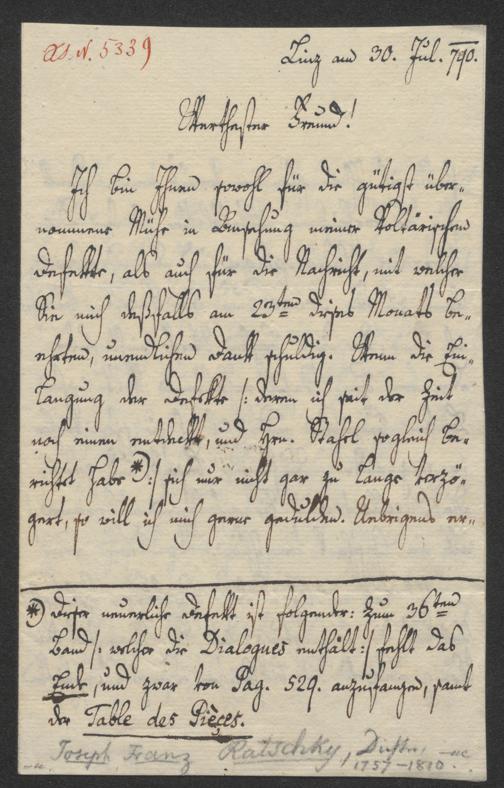 A. N. 5339
Linz am 30. Jul. 790.
Werthester Freund!
Ich bin Ihnen sowohl für die gütigst über-
nommene Mühe in Einsehung meiner Voltärischen
Defekte, als auch für die Nachricht, mit welcher
Sie mich deßfalls am 23ten dieses Monats be-
ehrten, unendlichen Dank schuldig. Wenn die Ein-
langung der Defekte /: deren ich seit der Zeit
noch einen entdeckt, und Hrn. Stahel sogleich be-
richtet habe *) :/ sich nur nicht gar zu lange verzö-
gert, so will ich mich gerne gedulden. Uebrigens er-
*) Dieser neuerliche Defekt ist folgender: Zum 36ten
Band /: welcher die Dialogues enthält :/ fehlt das
Ende, und zwar von Pag. 529. anzufangen, samt
der Table des Pièces.
Joseph Franz Ratschky, Dichter,
1757-1810.